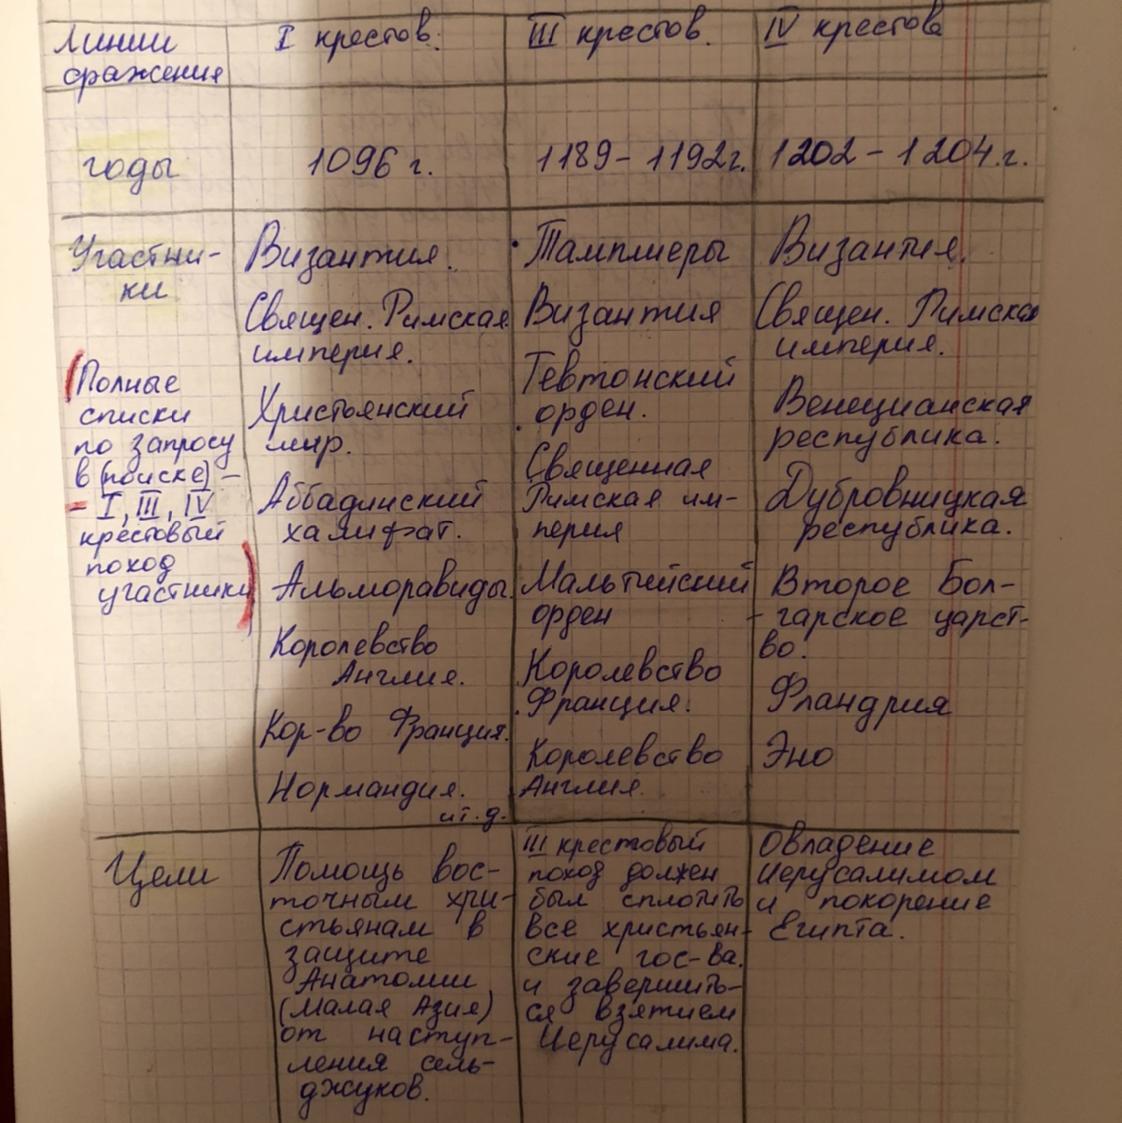 Линии
сражения
I крестов.
III крестов.
IV крестов
годы
1096 г.
1189 – 1192г.
1202 – 1204 г.
Участни-
ки
(Полные
списки
по запросу
в (поиске) –
– I, III, IV
крестовый
поход
участники)
Византия.
Священ. Римская
империя.
Христьянский
мир.
Аббадинский
халифат.
Альморавиды.
Королевство
Англия.
Кор-во Франция.
Нормандия.
и т.д.
Тамплиеры
Византия
Тевтонский
орден.
Священная
Римская им-
перия
Мальтийский
орден
Королевство
Франция.
Королевство
Англия.
Византия.
Священ. Римская
империя.
Венецианская
республика.
Дубровницкая
республика.
Второе Бол-
гарское царст-
во.
Фландрия
Эно
Цели
Помощь вос-
точным хри-
стьянам в
защите
Анатомии
(Малая Азия)
от наступ-
ления сель-
джуков.
III крестовый
поход должен
был сплотить
все христьян-
ские гос-ва.
и завершить-
ся взятием
Иерусалима.
Овладение
Иерусалимом
и покорение
Египта.